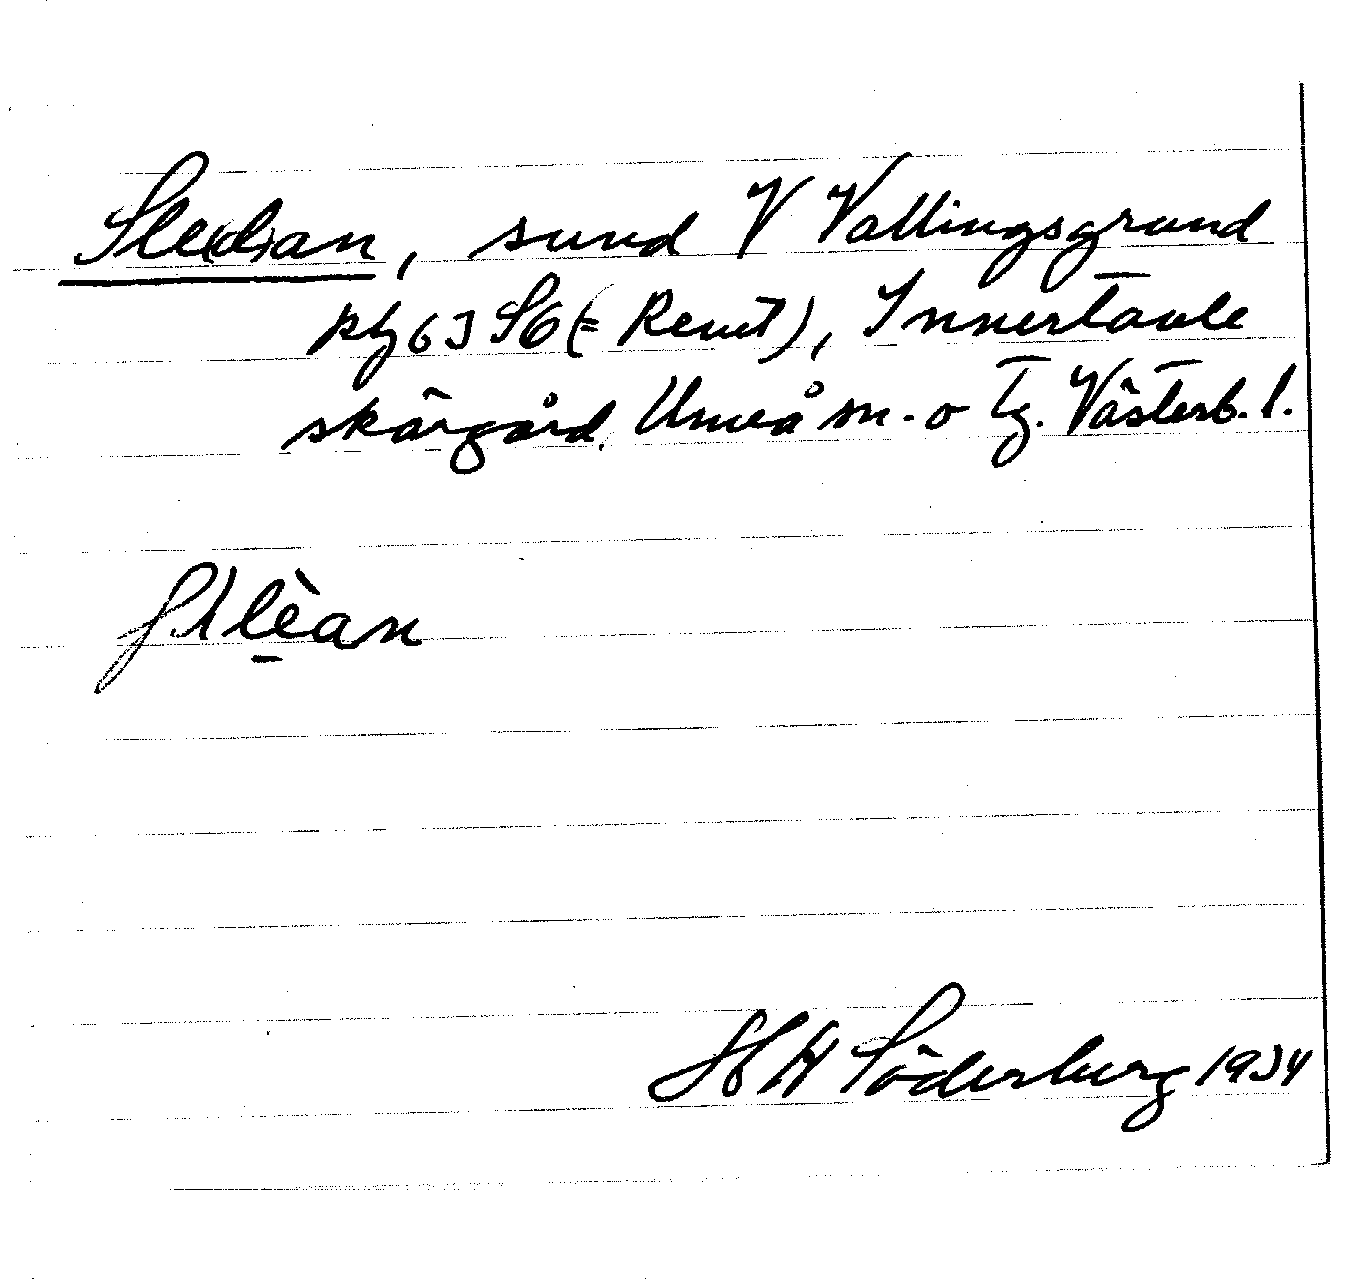 Sledan, sund V Vallingsgrund
kbg 63 SO (= Renet), Innertavle
skärgård, Umeå sn. o tg. Västerb. l.
lèan
H H Söderberg 1934